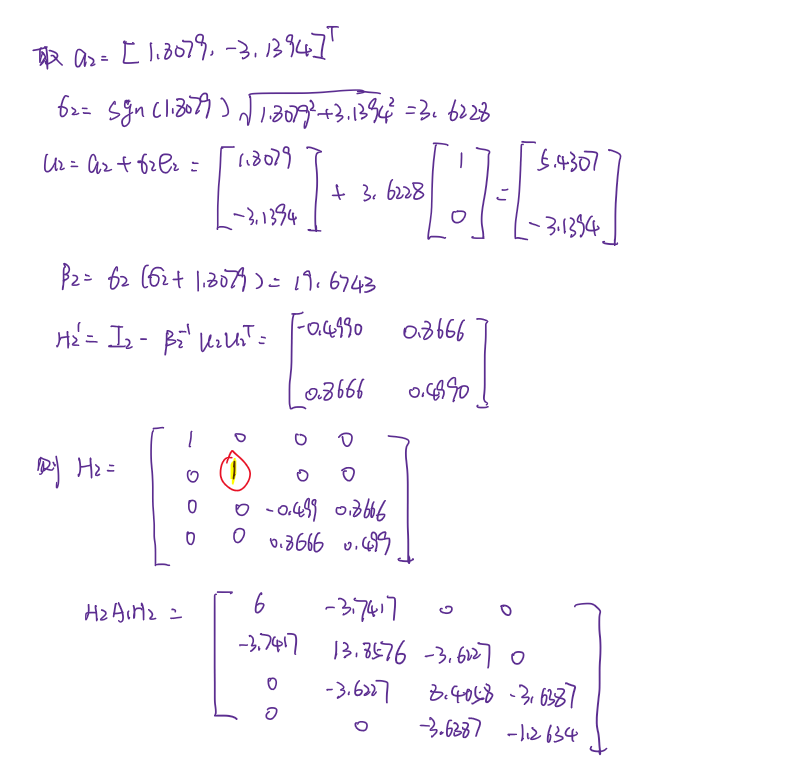 取 a₂= [1.8079, -3.1394]ᵀ
σ₂= sgn(1.8079) √(1.8079²+3.1394²) =3.6228
u₂= a₂+σ₂e₂ = [1.8079; -3.1394] + 3.6228 [1; 0] = [5.4307; -3.1394]
β₂= σ₂(σ₂+1.8079)= 19.6743
H₂'= I₂- β₂⁻¹ u₂u₂ᵀ= [-0.4990 0.8666; 0.8666 0.4990]
则 H₂=
1 0 0 0
0 1 0 0
0 0 -0.499 0.8666
0 0 0.8666 0.499
H₂A₁H₂ =
6 -3.7417 0 0
-3.7417 13.8576 -3.6227 0
0 -3.6227 8.4058 -3.6387
0 0 -3.6387 -1.2634